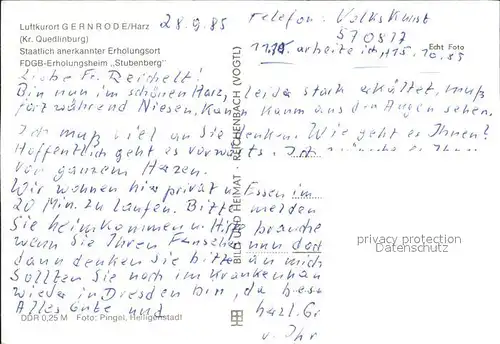 Luftkurort GERNRODE/Harz
(Kr. Quedlinburg)
Staatlich anerkannter Erholungsort
FDGB-Erholungsheim „Stubenberg"
28.9.85
Telefon: Volkskunst
570817
arbeite ich 15.10.85
Echt Foto
Liebe Fr. Reichelt!
Bin nun im schönen Harz, leider stark erkältet, muß
fortwährend Niesen, kann kaum aus den Augen sehen.
Ich muß viel an Sie denken. Wie geht es Ihnen?
Hoffentlich geht es vorwärts. Ich wünsche es Ihnen
von ganzem Herzen.
Wir wohnen hier privat u. Essen im
20 Min. zu laufen. Bitte melden
Sie heimkommen u. Hilfe brauche
wenn Sie Ihren Fernseher nun doch
dann denken Sie bitte an mich
Sollten Sie noch im Krankenhau
wieder in Dresden bin, da besu
Alles Gute und
herzl. Gr
v. Ihr
BILD UND HEIMAT · REICHENBACH (VOGTL)
privacy protection
Datenschutz
DDR 0,25 M Foto: Pingel, Heiligenstadt